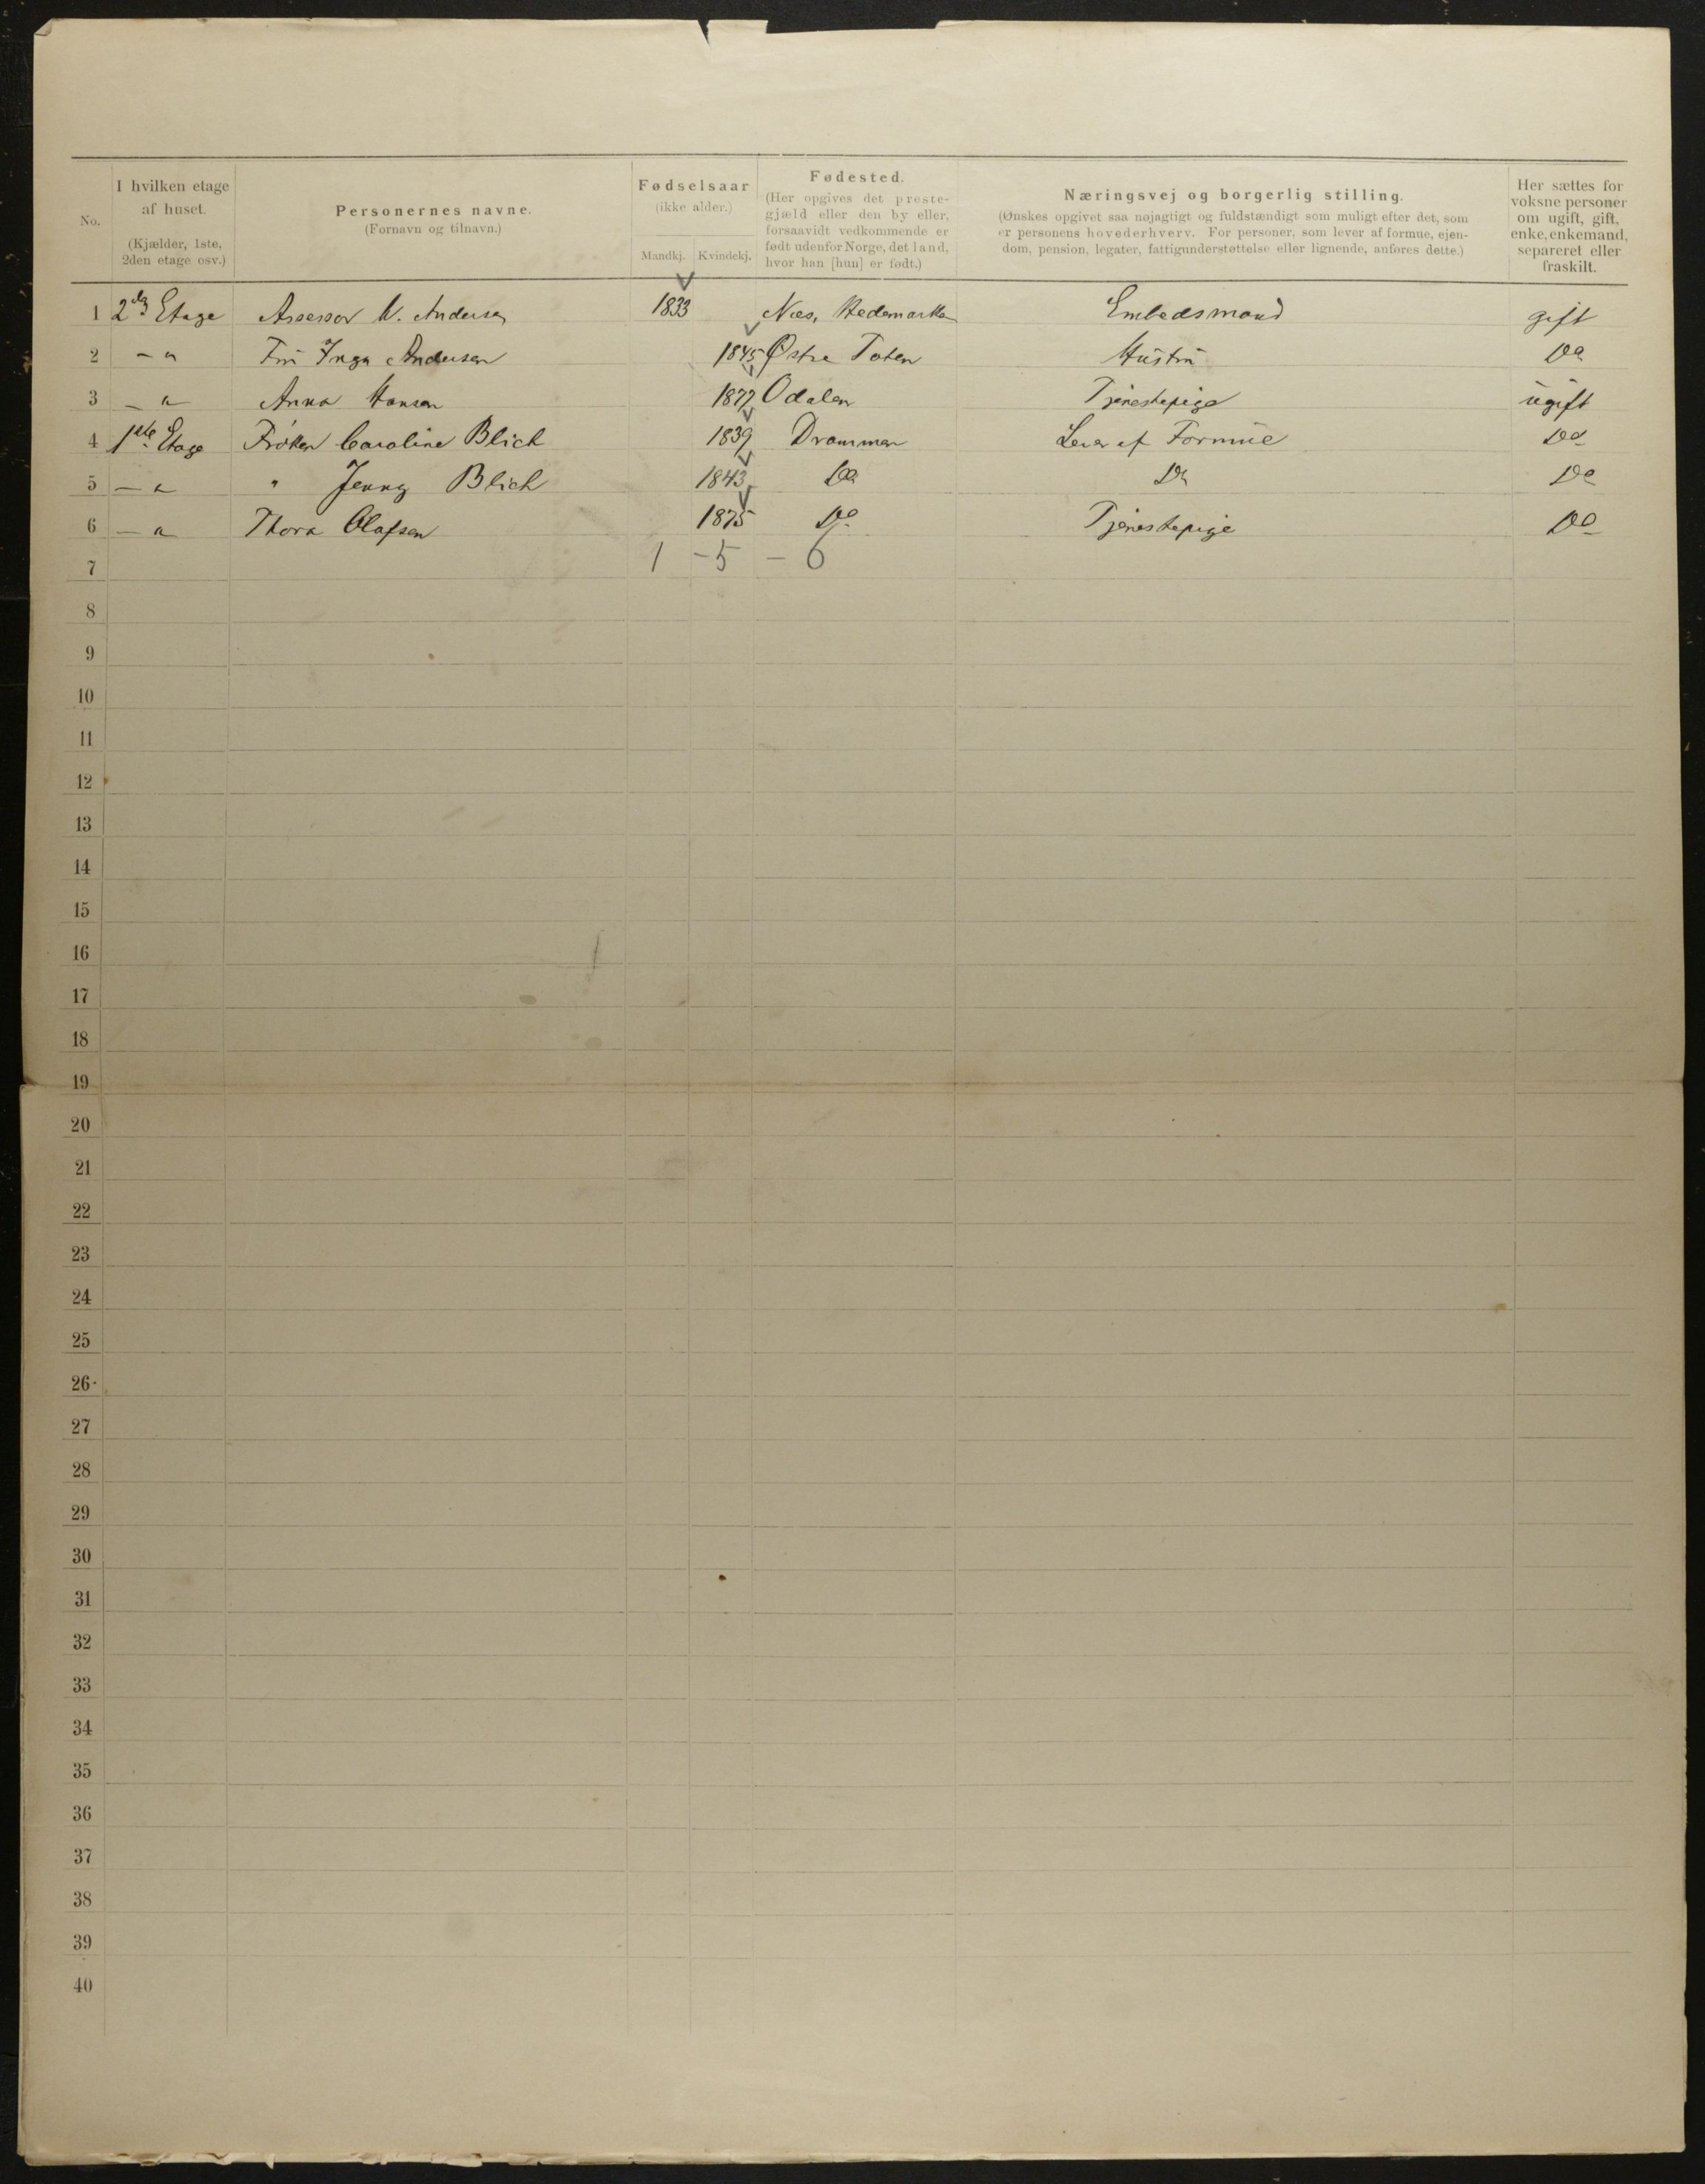 No.
I hvilken etage
af huset.
(Kjælder, 1ste,
2den etage osv.)
Personernes navne.
(Fornavn og tilnavn.)
Fødselsaar
(ikke alder.)
Mandkj. Kvindekj.
Fødested.
(Her opgives det preste-
gjæld eller den by eller,
forsaavidt vedkommende er
født udenfor Norge, det land,
hvor han [hun] er født.)
Næringsvej og borgerlig stilling.
(Ønskes opgivet saa nøjagtigt og fuldstændigt som muligt efter det, som
er personens hovederhverv. For personer, som lever af formue, ejen-
dom, pension, legater, fattigunderstøttelse eller lignende, anføres dette.)
Her sættes for
voksne personer
om ugift, gift,
enke, enkemand,
separeret eller
fraskilt.
1 2den Etage Assessor N. Andersen 1833 Næs, Hedemarken Embedsmand gift
2 — " Fru Inga Andersen 1845 Østre Toten Hustru Do
3 — " Anna Hansen 1877 Odalen Tjenestepige ugift
4 1ste Etage Frøken Caroline Blich 1839 Drammen Lever af Formue Do
5 — " " Jenny Blich 1843 Do Do Do
6 — " Thora Olafsen 1875 Do Tjenestepige Do
7 1 - 5 - 6
8
9
10
11
12
13
14
15
16
17
18
19
20
21
22
23
24
25
26
27
28
29
30
31
32
33
34
35
36
37
38
39
40